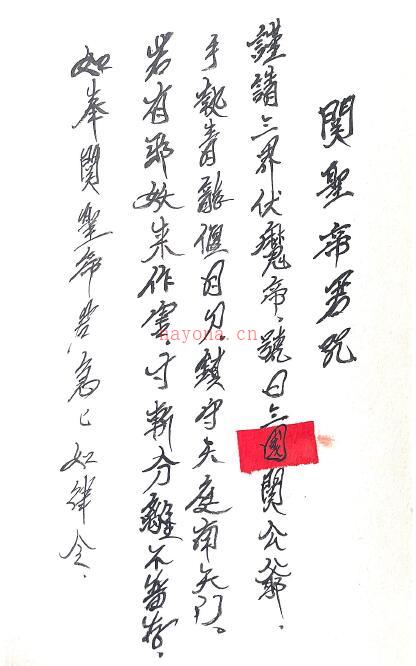 関聖帝君咒
謹請三界伏魔帝、號曰三國関公爺、
手執青龍偃月刀、鎮守天庭南天門。
若有邪妖来作害、寸斬分離不留存。
如奉関聖帝君急急如律令、
nayona.cn